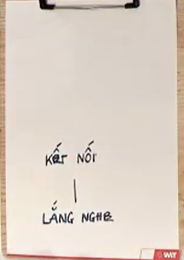 KẾT NỐI
|
LẮNG NGHE
WIT